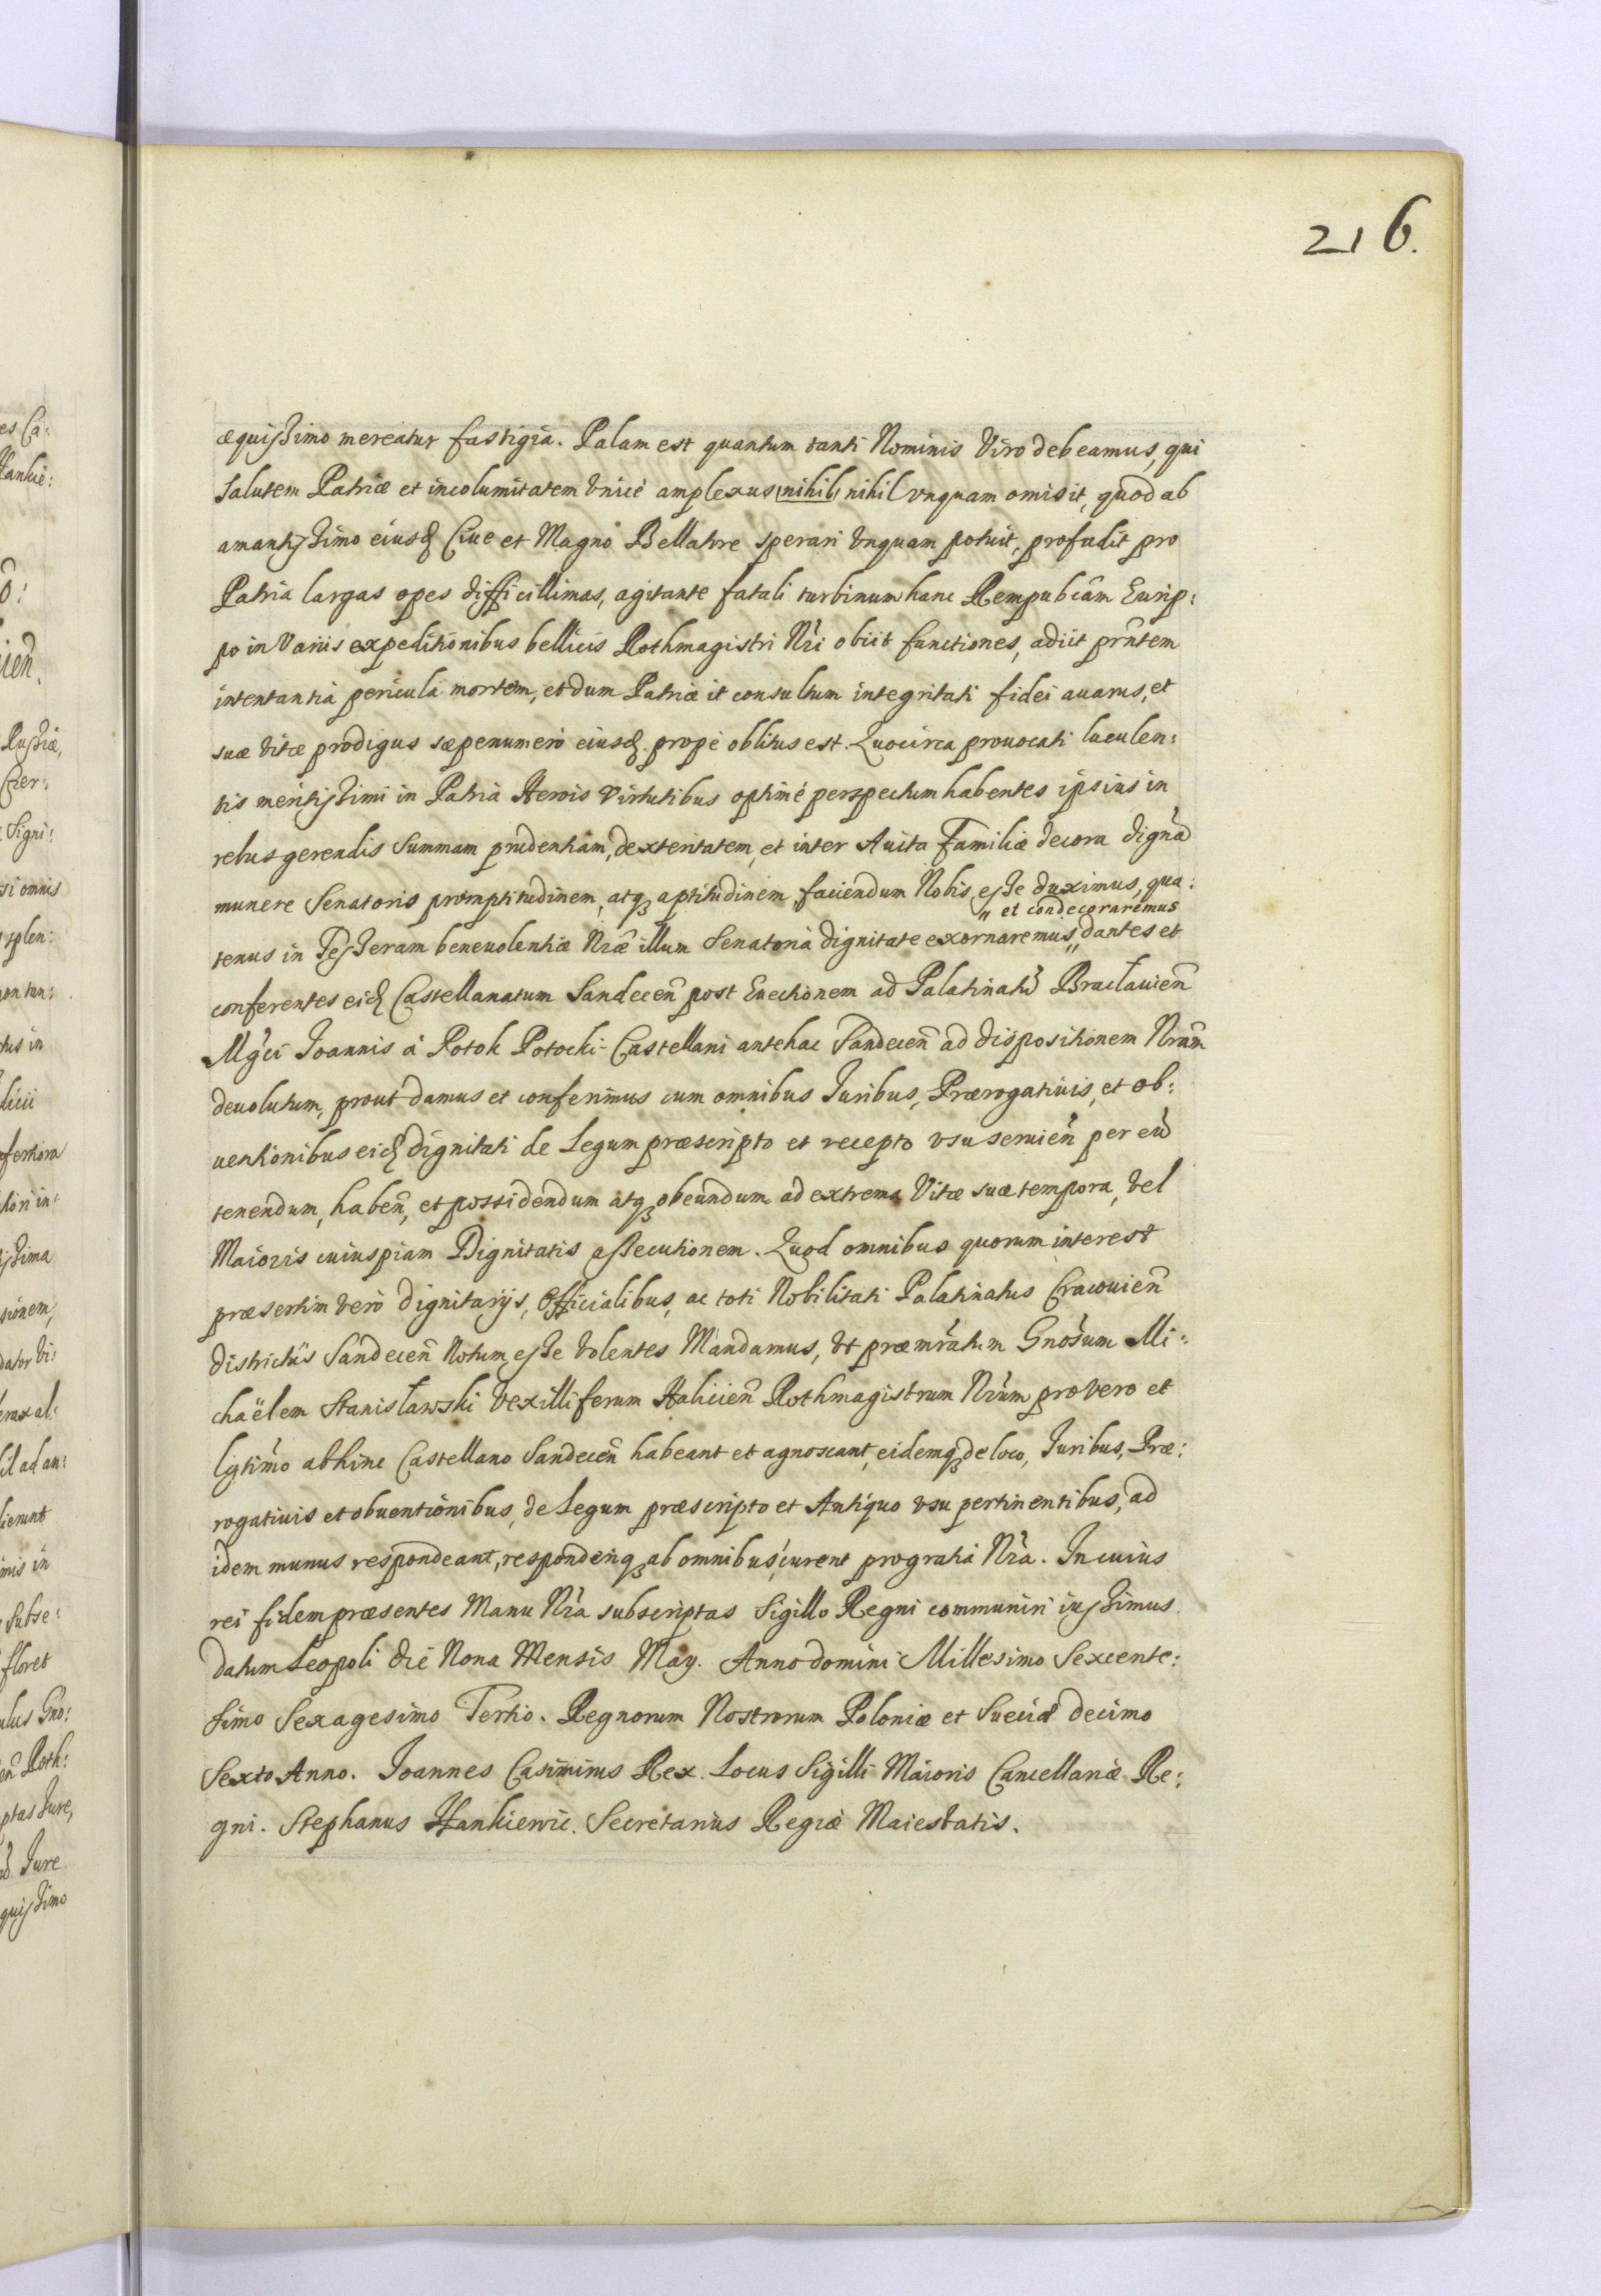 216.
æquissimo mereatur fastigia. Palam est quantum tanti Nominis Viro debeamus, qui
Salutem Patriæ et incolumitatem Vnicè amplexus nihil nihil vnquam omisit, quod ab
amantissimo eiusd Ciue et Magno Bellatore sperari Vnquam potuit, profudit pro
Patria largas opes difficillimas, agitante fatali turbinum hanc Rempubcām Eurip:
po in Variis expeditionibus bellicis Rothmagistri Nri obiit functiones, adiit prntem
intentantia pericula mortem, et dum Patriæ it consultum integritati fidei auarus, et
suæ Vitæ prodigus sæpenumerò eiusd. propè oblitus est. Quocirca prouocati luculen:
tis meritissimi in Patria Herois Virtutibus optimè perspectum habentes ipsius in
rebus gerendis Summam prudentiam, dexteritatem, et inter Auita Familiæ decora dignā
munere Senatorio promptitudinem, atq₃ aptitudinem, faciendum Nobis esse duximus, qua:
" et condecoraremus
tenus in Tesseram beneuolentiæ Nræ illum Senatoria dignitate exornaremus," dantes et
conferentes eid Castellanatum Sandecen̄ post Euectionem ad Palatinatū Bracłauien̄
Mgci Joannis à Potok Potocki Castellani antehac Sandecen̄ ad dispositionem Nram̄
deuolutum, prout damus et conferimus cum omnibus Juribus, Prærogatiuis, et ob:
uentionibus eid dignitati de Legum præscripto et recepto vsu seruien̄ per eū
tenendum, haben̄, et possidendum atq₃ obeundum ad extrema Vitæ suæ tempora, vel
Maioris cuiuspiam Dignitatis assecutionem. Quod omnibus quorum interest
præsertim verò Dignitarijs, Officialibus, ac toti Nobilitati Palatinatus Cracouien̄
districtús Sandecen̄ Notum esse volentes Mandamus, Vt præmratum Gnosum Mi:
chaëlem Stanisławski Vexilliferum Halicien̄ Rothmagistrum Nrum pro vero et
lgtimo abhinc Castellano Sandecen̄ habeant et agnoscant, eidemq₃ de loco, Juribus, Præ:
rogatiuis et obuentionibus, de Legum præscripto et Antiquo vsu pertinentibus, ad
idem munus respondeant, responderiq₃ ab omnibus curent pro gratia Nra. In cuius
rei fidem præsentes Manu Nra subscriptas Sigillo Regni communiri iussimus
datum Leopoli die Nona Mensis May. Anno domini Millesimo Sexcente:
simo Sexagesimo Tertio. Regnorum Nostrorum Poloniæ et Sueciæ decimo
Sexto Anno. Joannes Casimirus Rex. Locus Sigilli Maioris Cancellariæ Re:
gni. Stephanus Hankiewic. Secretarius Regiæ Maiestatis.